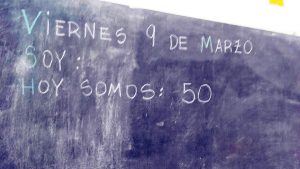 VIERNES 9 DE MARZO
SOY:
HOY SOMOS: 50